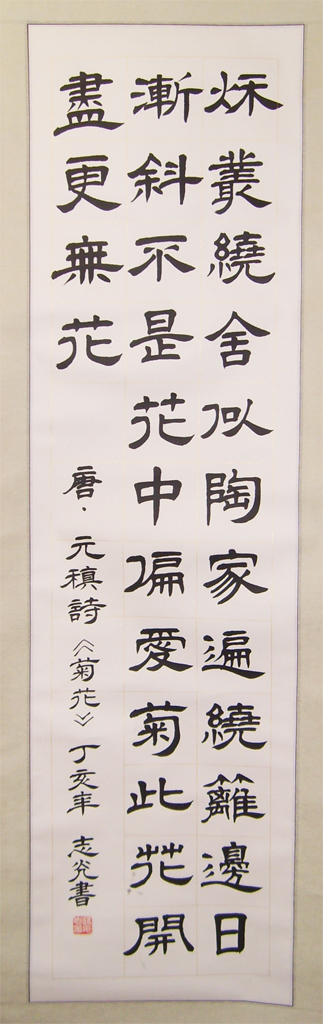 秌叢繞舍似陶家遍繞籬邊日
漸斜不是花中偏愛菊此花開
盡更無花
唐·元稹詩《菊花》丁亥年 志光書